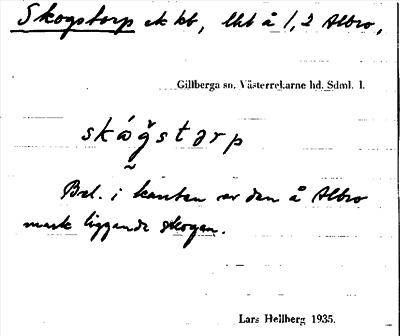 Skogstorp ek kb, lht å 1, 2 Albro,
Gillberga sn. Västerrekarne hd. Sdml. l.
skógstɔrp
Bel. i kanten av den å Albro
mark liggande skogen.
Lars Hellberg 1935.